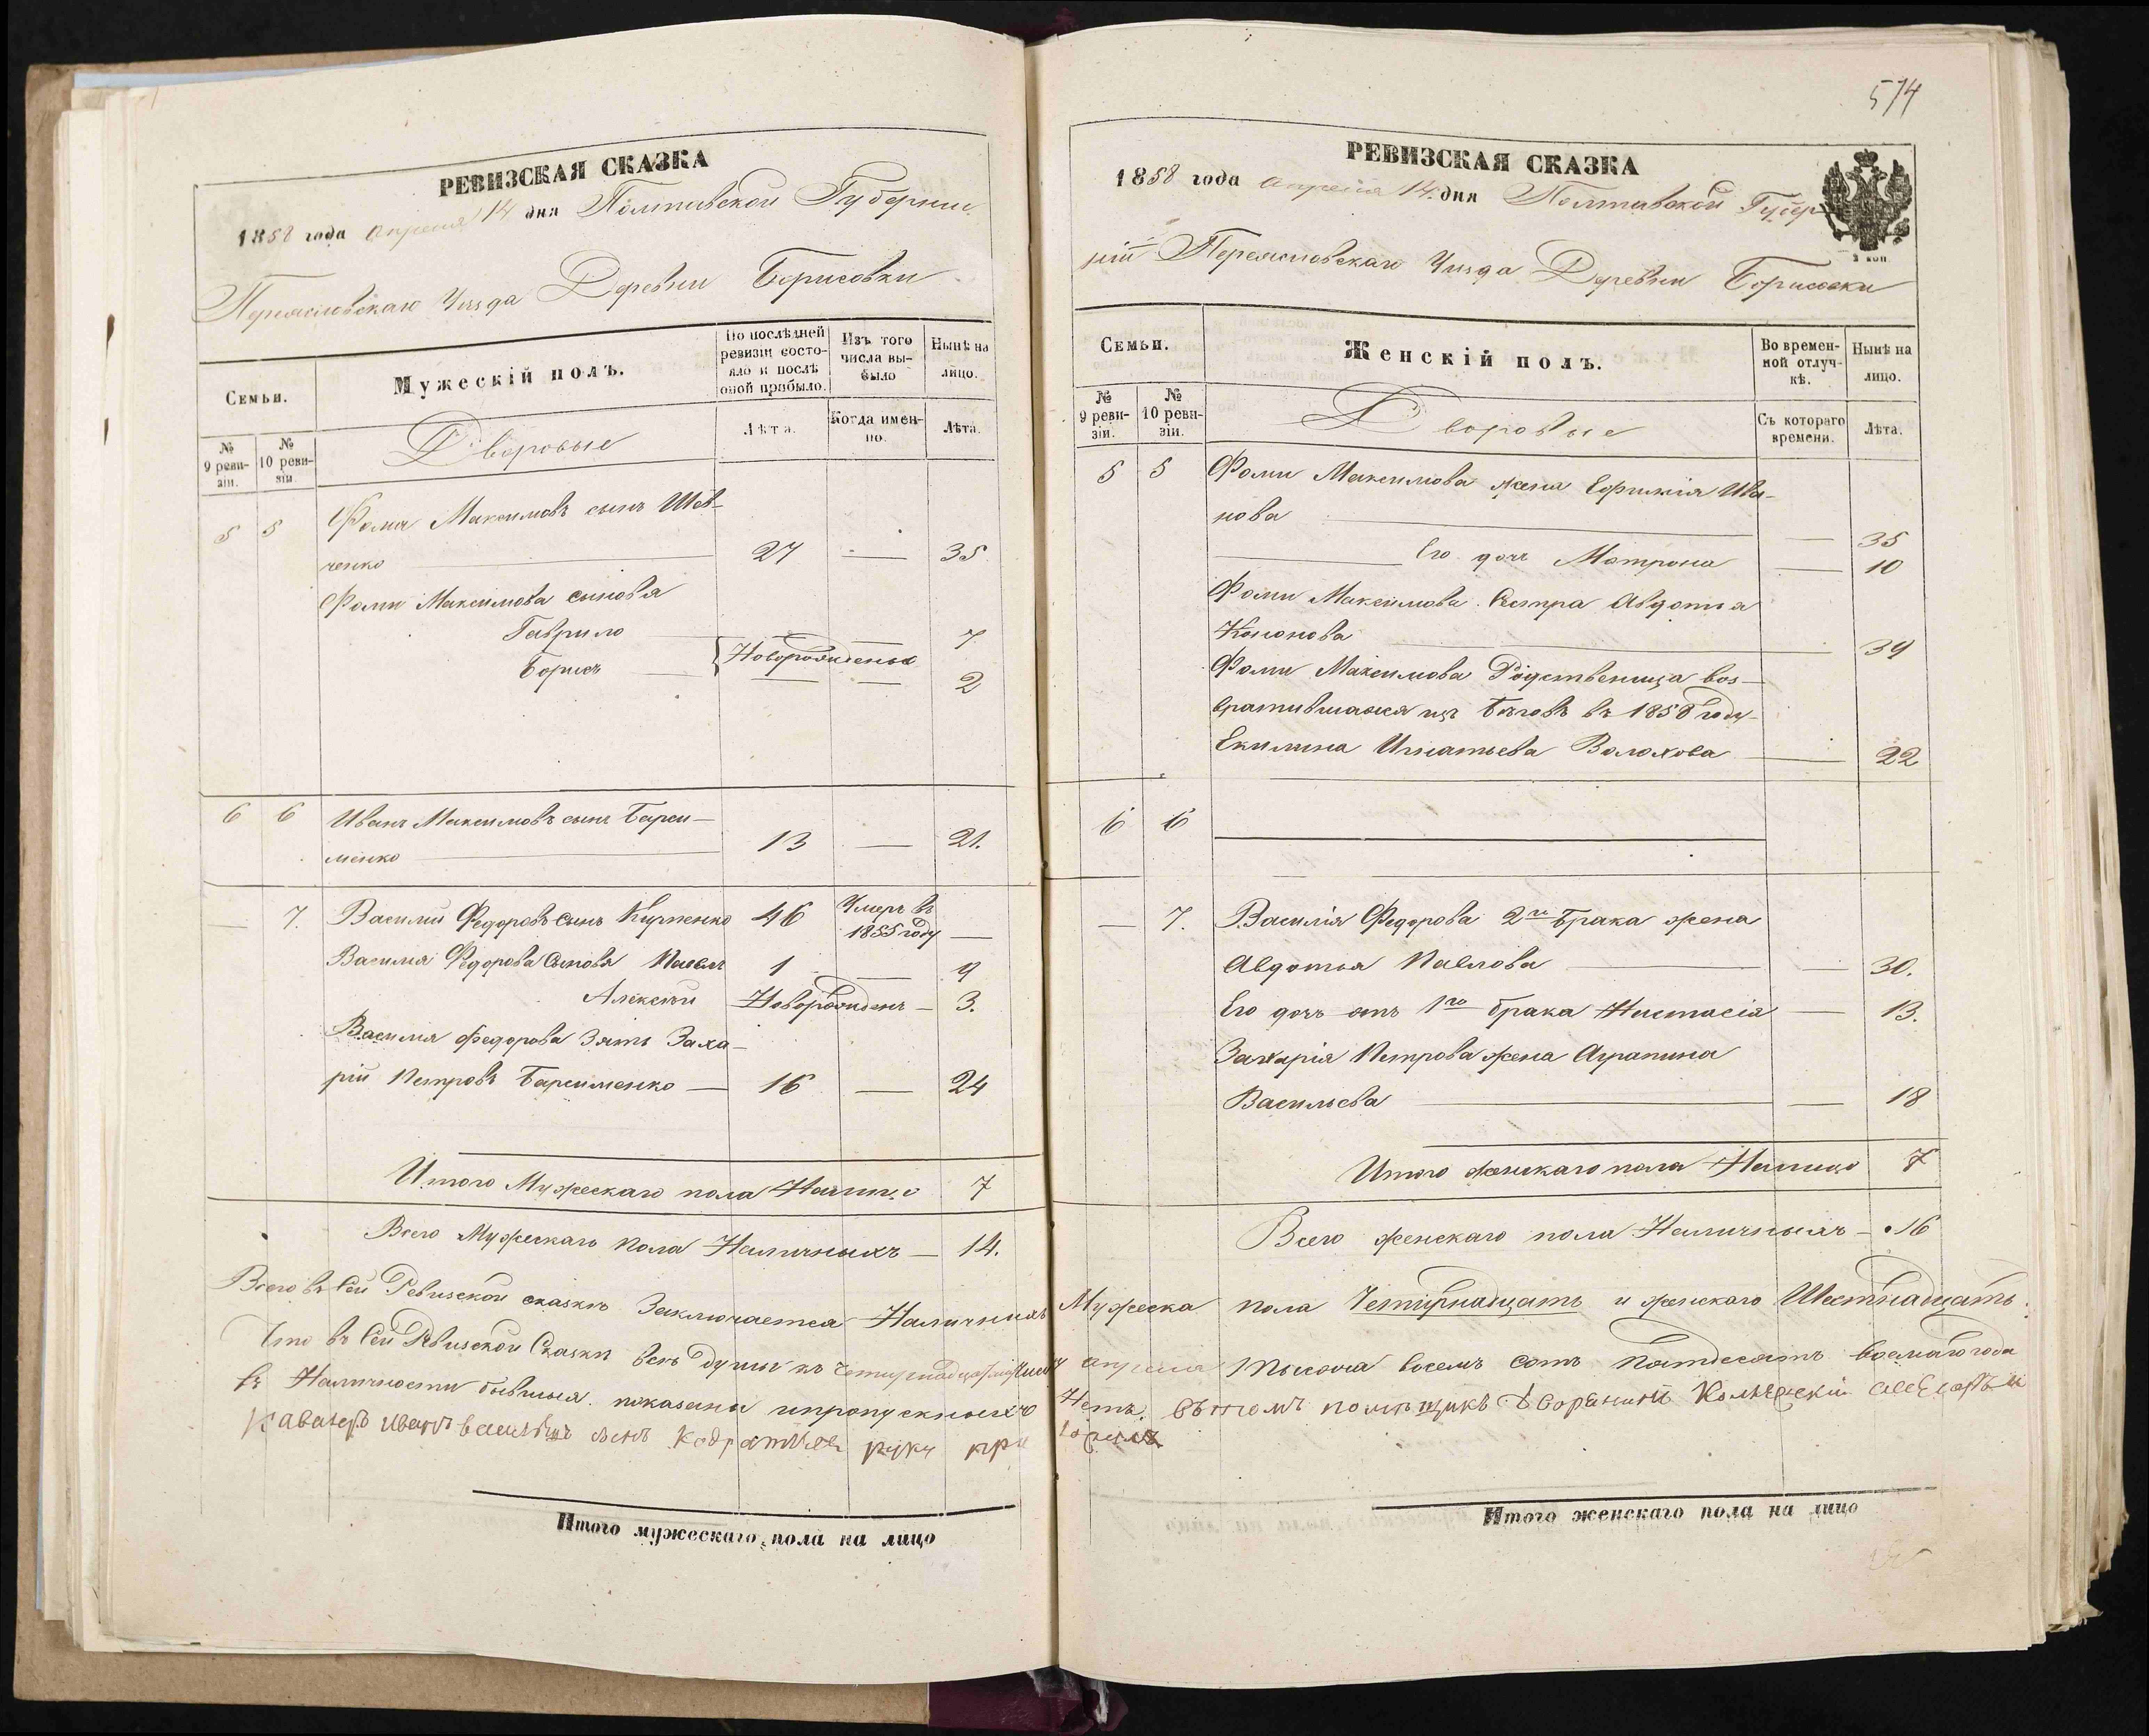 РЕВИЗСКАЯ СКАЗКА
1858 года апреля 14 дня Полтавской Губернии
Переясловскаго Уезда Деревни Борисовки
Семьи.
Мужескій полъ.
По послѣдней ревизіи состояло и послѣ оной прибыло.
Изъ того числа выбыло
Нынѣ на лицо.
№ 9 ревизіи.
№ 10 ревизіи
Дворовые
Лѣта.
Когда именно.
Лѣта.
5 5 Фома Максимовъ сынъ Шев-
ченко 27 — 35
Фомы Максимова сыновья
Гаврило 7
Борисъ Новорожденые 2
6 6 Иванъ Максимовъ сынъ Барси-
менко 13 — 21.
— 7. Василий Федоровъ сынъ 46 Умеръ въ 1855 году —
Василия Федорова Сыновья Павелъ 1 — 9
Алексѣй Новорожденъ — 3.
Василия Федорова Зять Заха-
рій Петровъ Барсименко — 16 — 24
Итого Мужескаго пола Налицо 7
Всего Мужескаго пола Наличныхъ — 14.
РЕВИЗСКАЯ СКАЗКА
574
1858 года апреля 14 дня Полтавской Губер-
ніи Переясловскаго Уезда Деревни Борисовки
3 коп
Семьи.
Женскій полъ.
Во временной отлучкѣ.
Нынѣ на лицо.
№ 9 ревизіи.
№ 10 ревизіи.
Дворовые
Съ котораго времени.
Лѣта.
5 5 Фомы Максимова жена Ефимия Ива-
нова — 35
Его дочь Матрона — 10
Фомы Максимова Сестра Авдотья
Кононова — 39
Фомы Максимова Родственица воз-
вратившаяся изъ Бѣговъ въ 1858 году
Екилина Игнатьева Волохова — 22
6 6
— 7. Василія Федорова 2го Брака жена
Авдотья Павлова — 30.
Его дочь отъ 1го брака Настасія — 13.
Захарія Петрова жена Агрипина
Васильева — 18
Итого женскаго пола Налицо 7
Всего женскаго пола Наличныхъ — 16
Всего въ Сей Ревизской сказкѣ Заключается Наличныхъ Мужеска пола Четырнадцать и женскаго Шестнадцать.
Что въ Сей Ревизской Сказкѣ всѣ души къ Четырнадцатому Числу апреля тысяча восемь сотъ пятдесятъ восьмаго года
въ Наличности бывшыя показаны и пропускныхъ Нетъ. вътомъ помѣщикъ Дворянинъ
Кавалеръ Иванъ руку при
ложилъ
Итого мужескаго пола на лицо
Итого женскаго пола на лицо